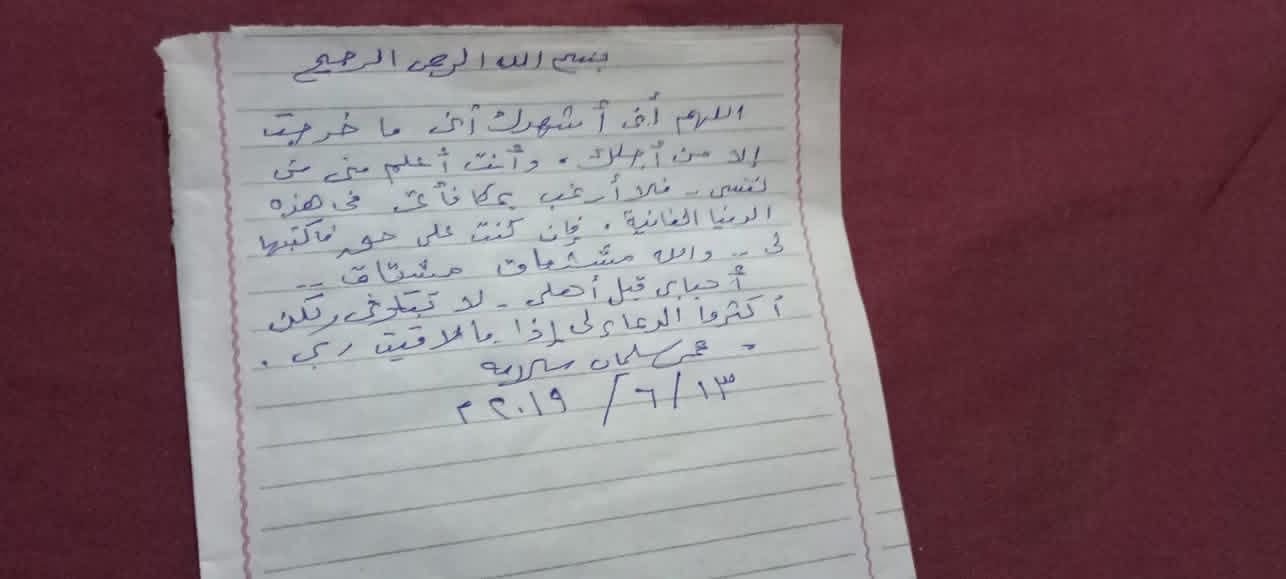 بسم الله الرحمن الرحيم
اللهم أنى أشهدك أنى ما خرجت
إلا من أجلك . وأنت أعلم منى منى
لنفسى .. فلا أرغب بمكافأتى فى هذه
الدنيا الفانية . فإن كنت على حق فاكتبها
لى .. والله مشتاق مشتاق ..
أحبابى قبل أهلى .. لا تبكونى ولكن
أكثروا الدعاء لى إذا ما لاقيت ربى .
عمر سلمان سلامه
١٣ / ٦ / ٢٠١٩ م